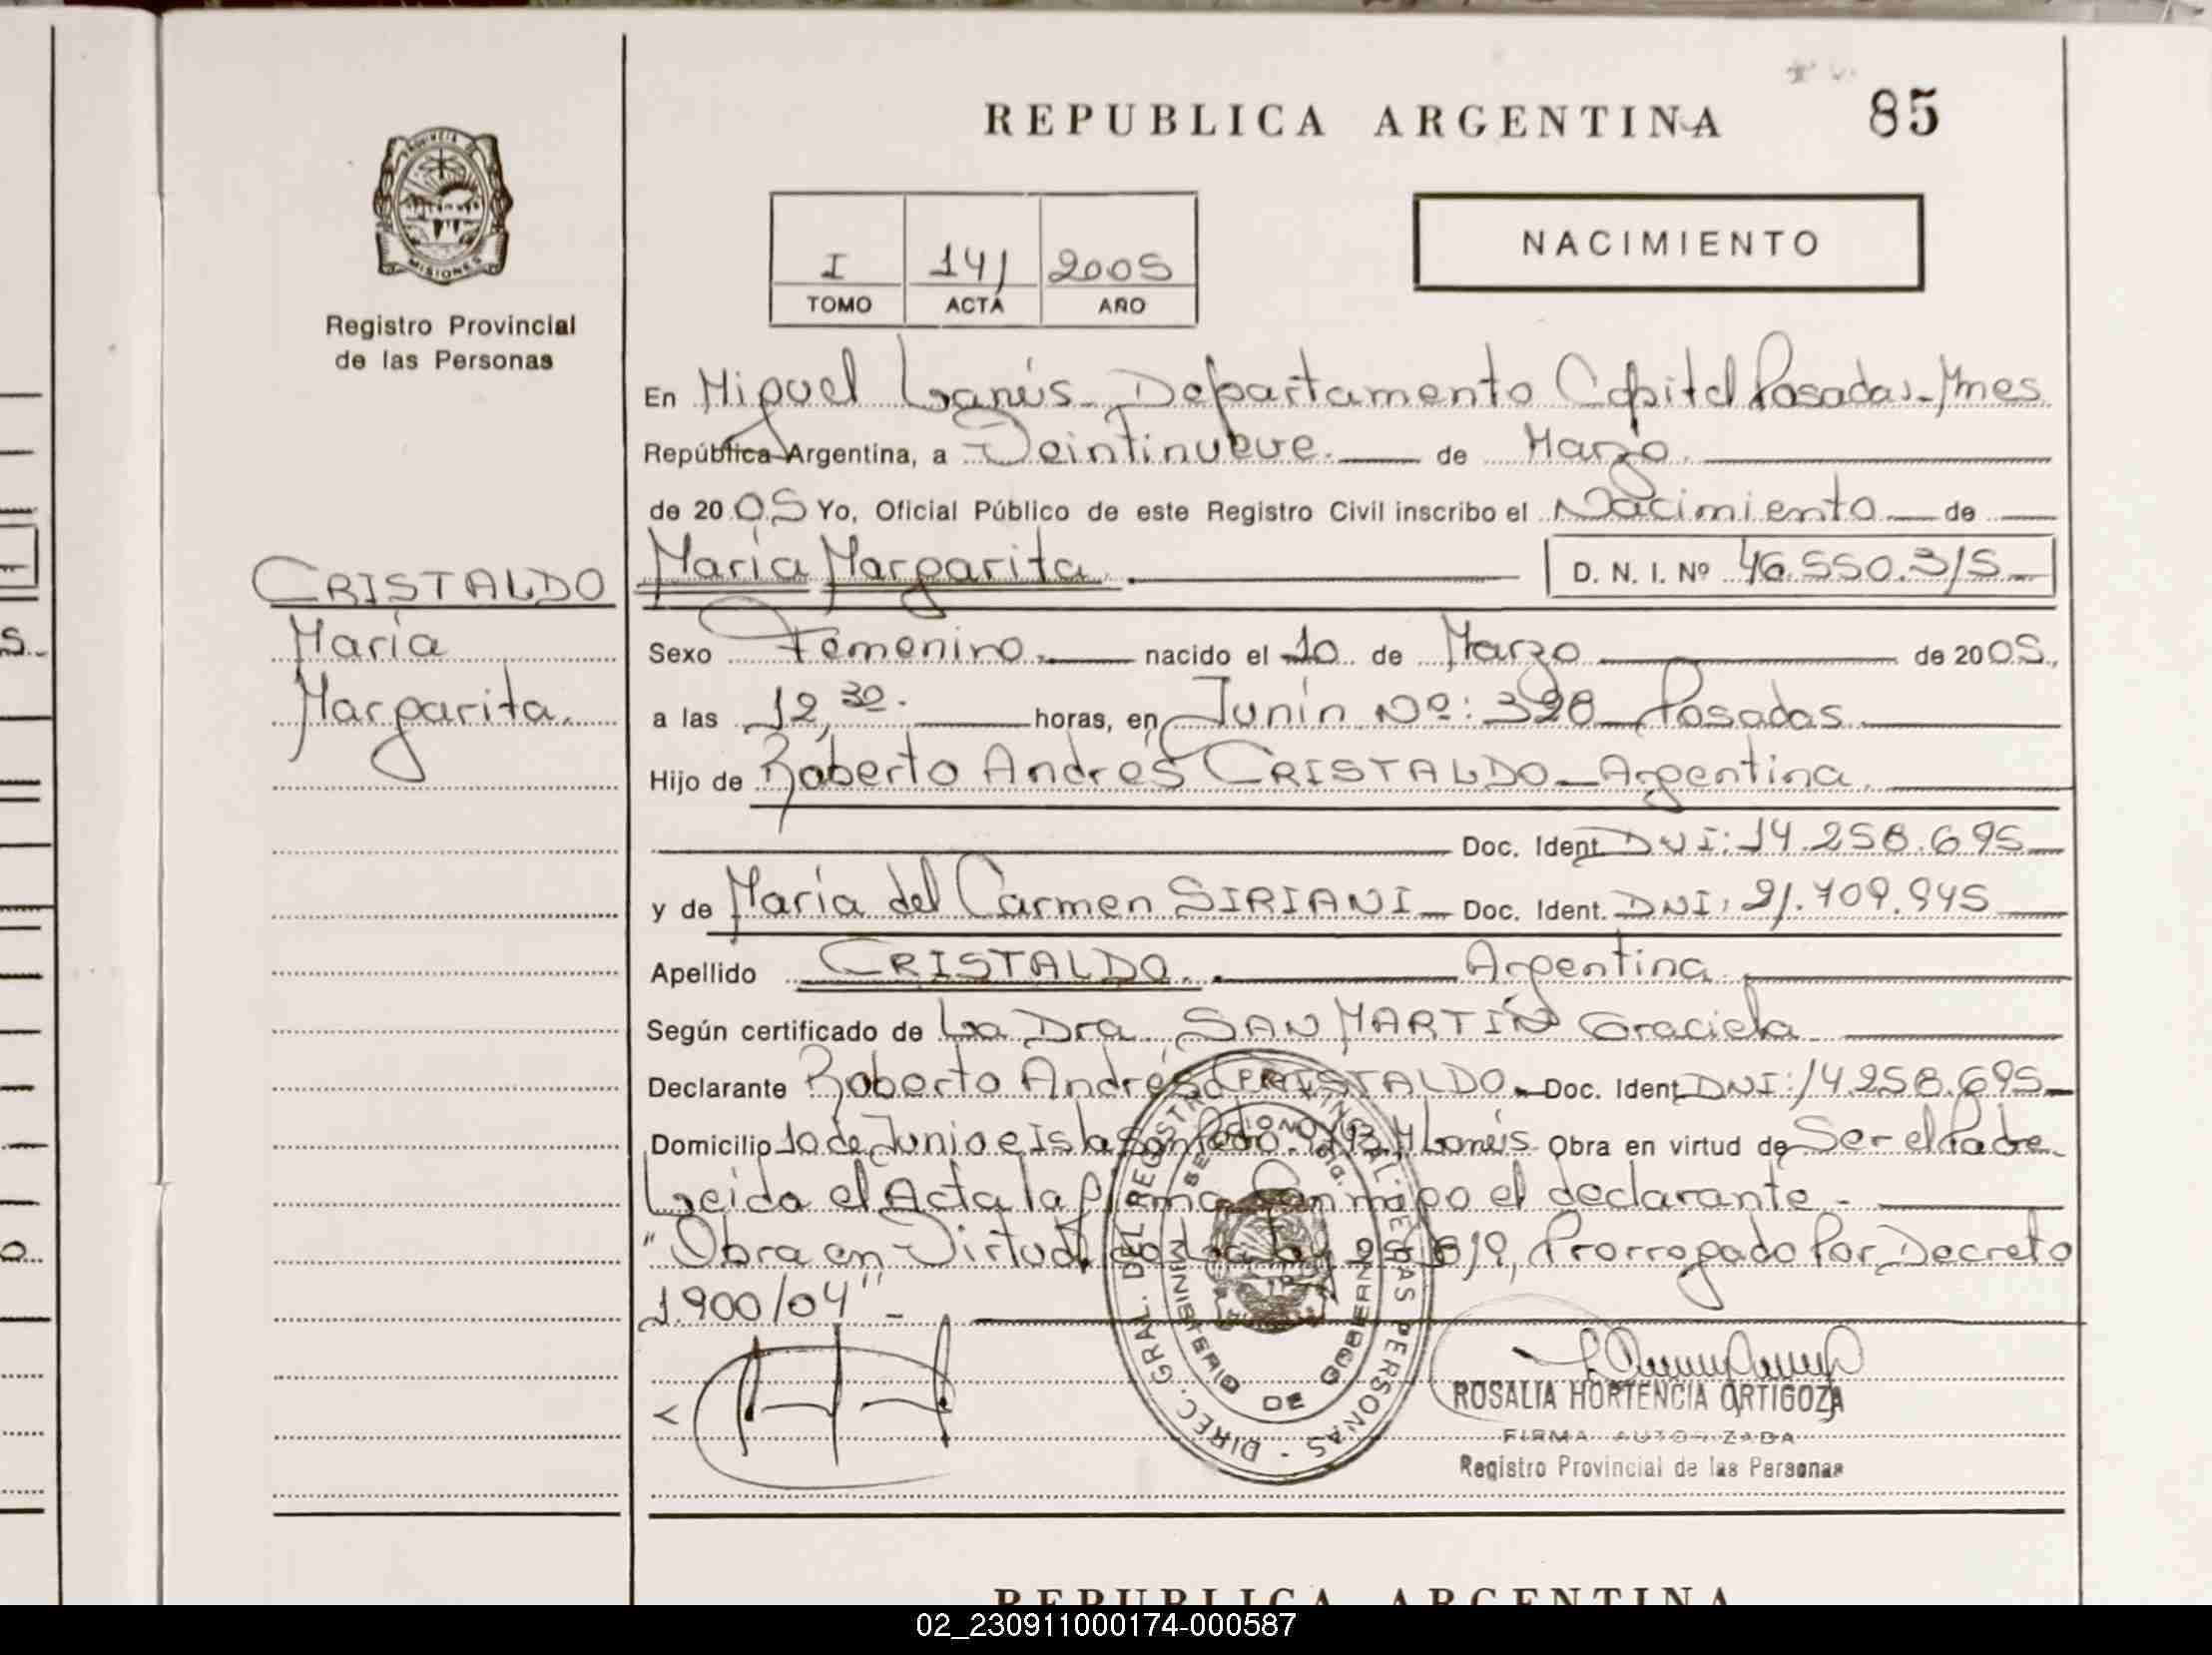 REPUBLICA ARGENTINA 85
PROVINCIA DE MISIONES
Registro Provincial
de las Personas
I 141 2005
TOMO ACTA AÑO
NACIMIENTO
En Miguel Lanús - Departamento Capital Posadas - Mnes
República Argentina, a Veintinueve. de Marzo.
de 2005 Yo, Oficial Público de este Registro Civil inscribo el Nacimiento de
CRISTALDO
María
Margarita.
María Margarita. D. N. I. Nº 46.550.315
Sexo Femenino. nacido el 10 de Marzo de 2005.,
a las 12,30. horas, en Junín Nº: 328 Posadas
Hijo de Roberto Andrés CRISTALDO - Argentina.
Doc. Ident. DNI: 14.258.695
y de María del Carmen SIRIANI Doc. Ident. DNI: 21.709.945
Apellido CRISTALDO. Argentina.
Según certificado de La Dra. SAN MARTIN Graciela
Declarante Roberto Andrés CRISTALDO. Doc. Ident. DNI: 14.258.695
Domicilio 10 de Junio e Isla San Pedro. M. Lanús. Obra en virtud de Ser el Padre.
Leida el Acta la Firma Conmigo el declarante.-
"Obra en Virtud de la Ley 25.819, Prorrogado Por Decreto
1.900/04"-
DIREC. GRAL. DEL REGISTRO PROVINCIAL DE LAS PERSONAS
MINISTERIO DE GOBIERNO
ROSALIA HORTENCIA ORTIGOZA
FIRMA AUTORIZADA
Registro Provincial de las Personas
REPUBLICA ARGENTINA
02_230911000174-000587